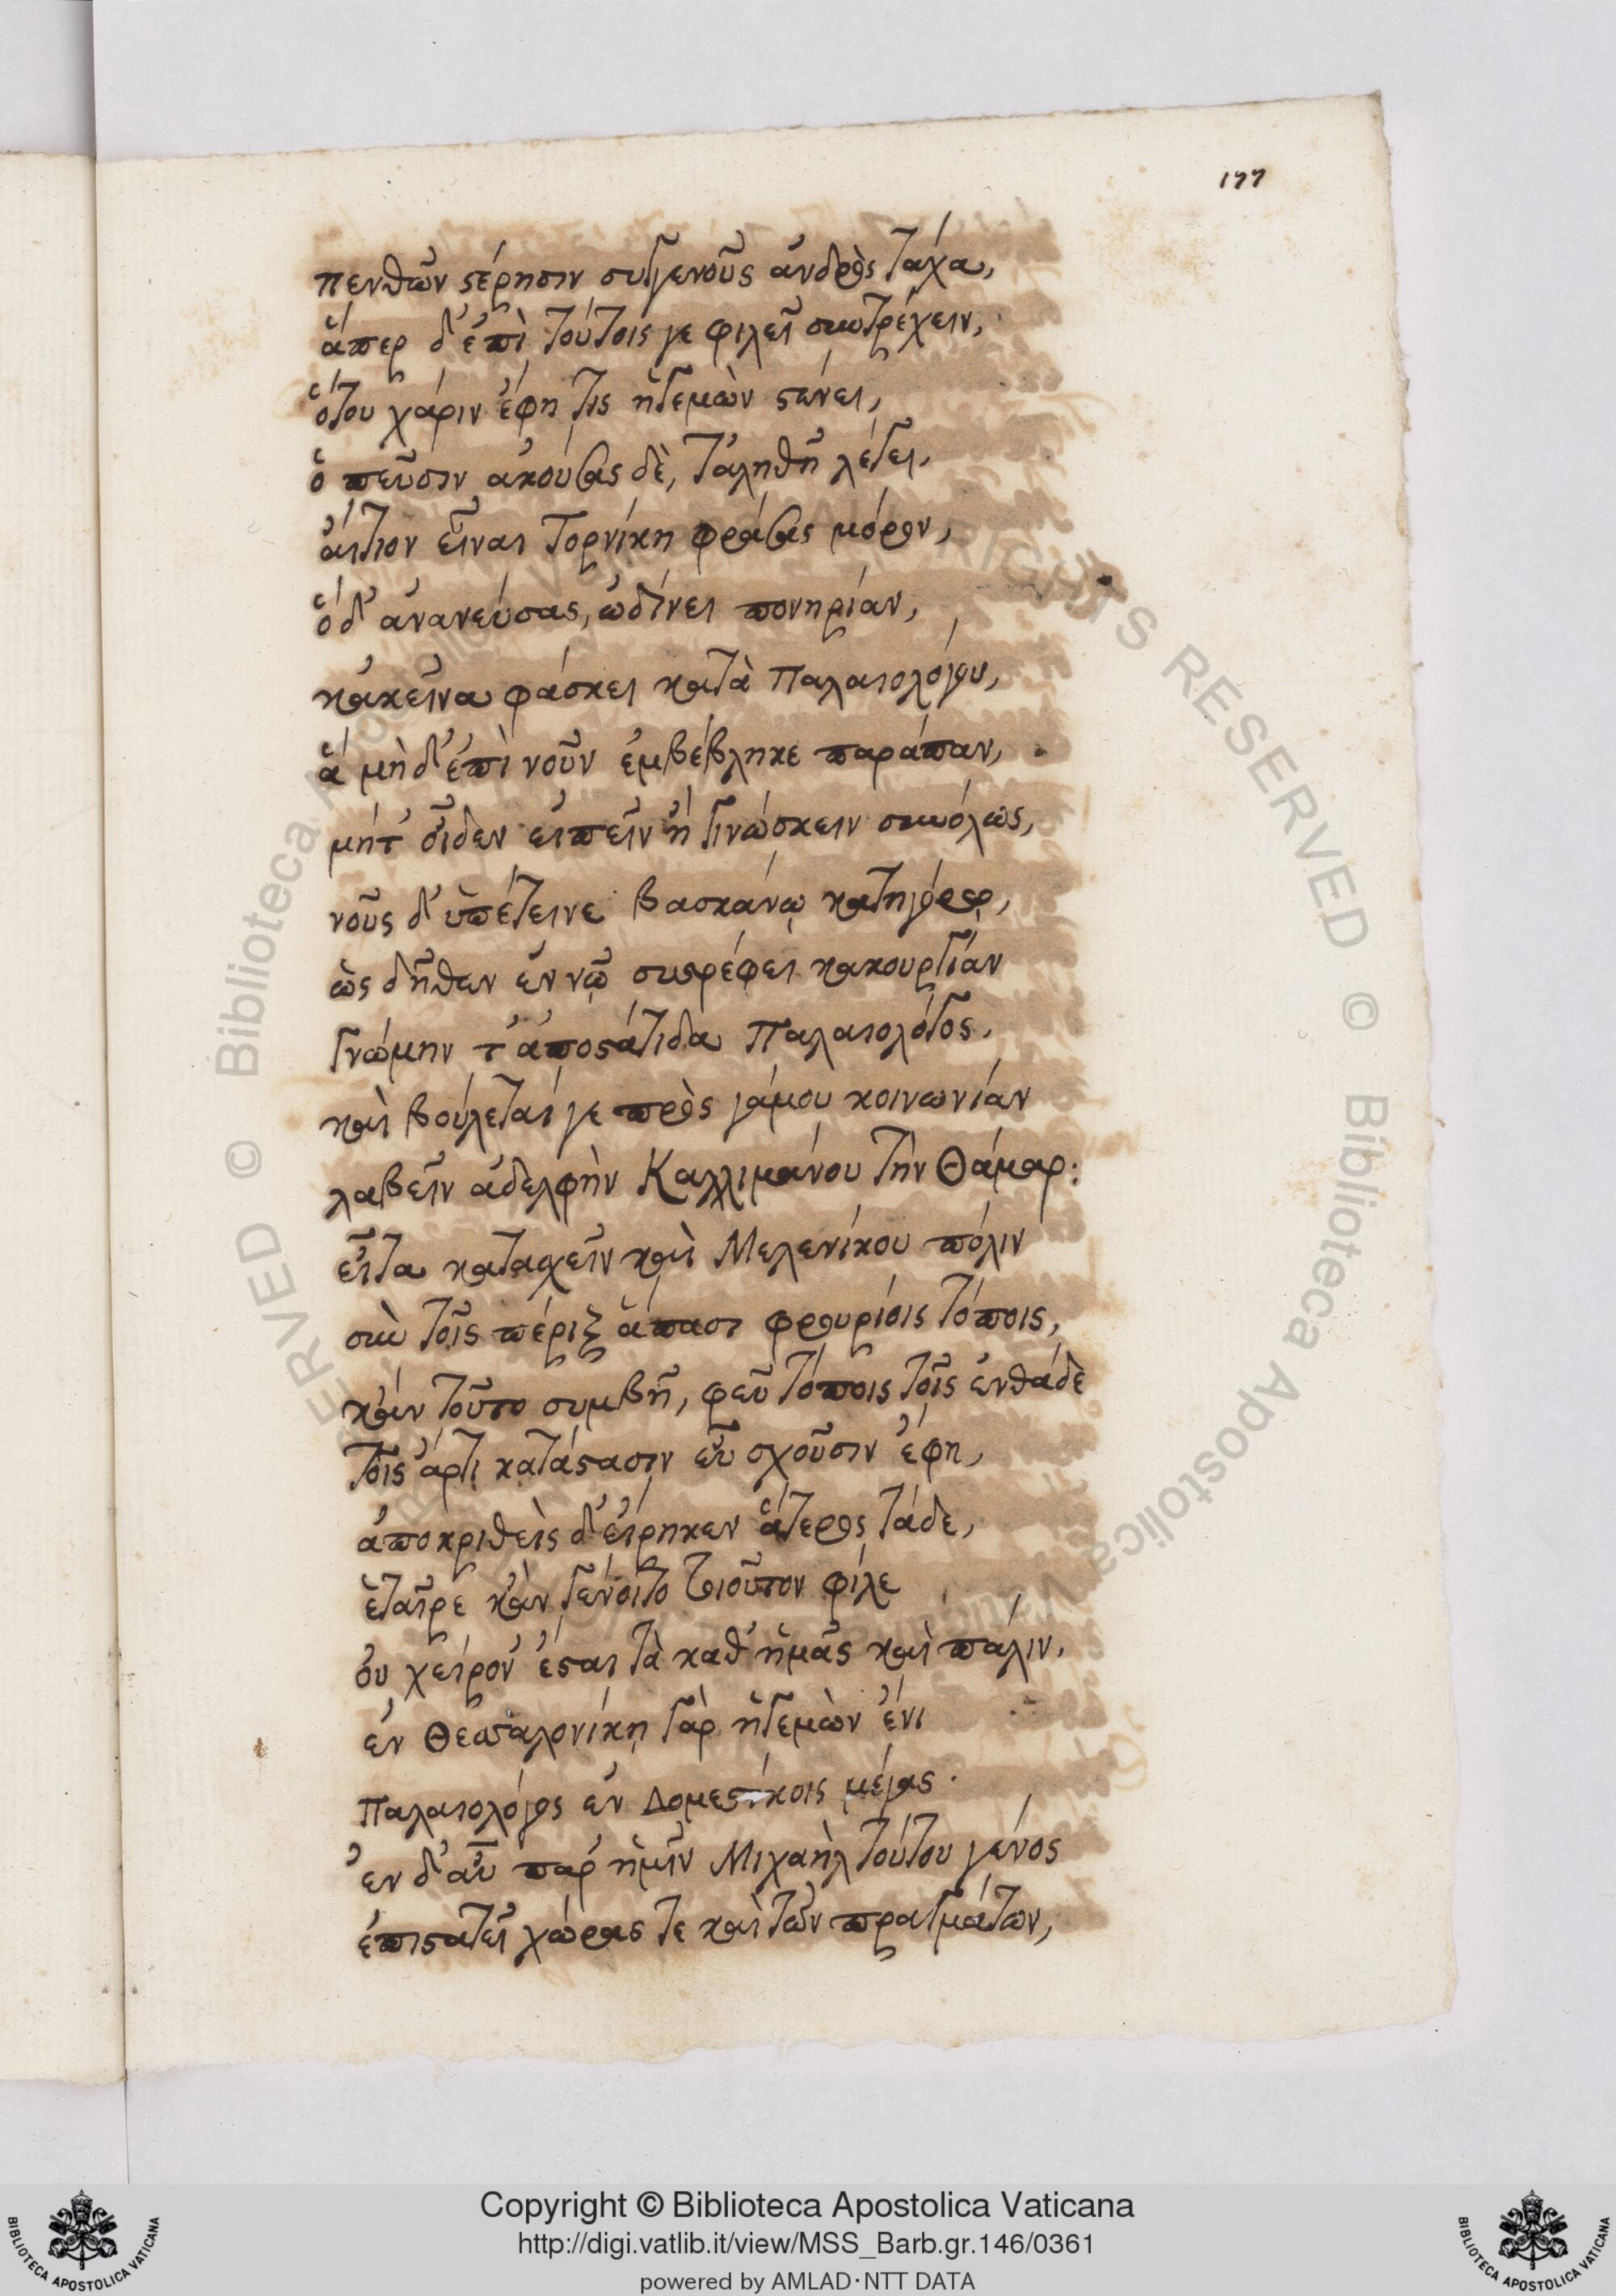 177
πενθῶν στέρησιν συγγενοῦς ἀνδρὸς τάχα,
ἅπερ δ' ἐπὶ τούτοις γε φιλεῖ συντρέχειν,
ὅτου χάριν ἔφη τις ἡγεμὼν στένει,
ὁ πεῦσιν ἀκούσας δὲ, τἀληθῆ λέγει,
αἴτιον εἶναι Τορνίκη φράσας μόρον,
ὁ δ' ἀνανεύσας, ὠδίνει πονηρίαν,
κἀκεῖνα φάσκει κατὰ Παλαιολόγου,
ἃ μὴ δ' ἐπὶ νοῦν ἐμβέβληκε παράπαν,
μήτ' οἶδεν εἰπεῖν ἢ γινώσκειν συνόλως,
νοῦς δ' ὑπέτεινε βασκάνῳ κατηγόρῳ,
ὡς δῆθεν ἐν νῷ συστρέφει κακουργίαν
γνώμην τ' ἀποστάτιδα Παλαιολόγος.
καὶ βούλεταί γε πρὸς γάμου κοινωνίαν
λαβεῖν ἀδελφὴν Καλλιμάνου τὴν Θάμαρ:
εἶτα κατασχεῖν καὶ Μελενίκου πόλιν
σὺν τοῖς πέριξ ἅπασι φρουρίοις τόποις,
κἂν τοῦτο συμβῇ, φεῦ τόποις τοῖς ἐνθάδε
τοῖς ἄρτι κατάστασιν εὖ σχοῦσιν ἔφη,
ἀποκριθεὶς δ' εἴρηκεν ἅτερος τάδε,
ἑταῖρε κἂν γένοιτο τοιοῦτον φίλε
οὐ χεῖρον ἔσται τὰ καθ' ἡμᾶς καὶ πάλιν.
ἐν Θεσσαλονίκῃ γὰρ ἡγεμὼν ἔνι
Παλαιολόγος ἐν Δομεστίκοις μέγας.
ἐν δ' αὖ παρ' ἡμῖν Μιχαὴλ τούτου γένος
ἐπιστατεῖ χώρας τε καὶ τῶν πραγμάτων,
© Biblioteca Apostolica Vaticana ALL RIGHTS RESERVED © Biblioteca Apostolica Vaticana
BIBLIOTECA APOSTOLICA VATICANA
Copyright © Biblioteca Apostolica Vaticana
http://digi.vatlib.it/view/MSS_Barb.gr.146/0361
powered by AMLAD·NTT DATA
BIBLIOTECA APOSTOLICA VATICANA